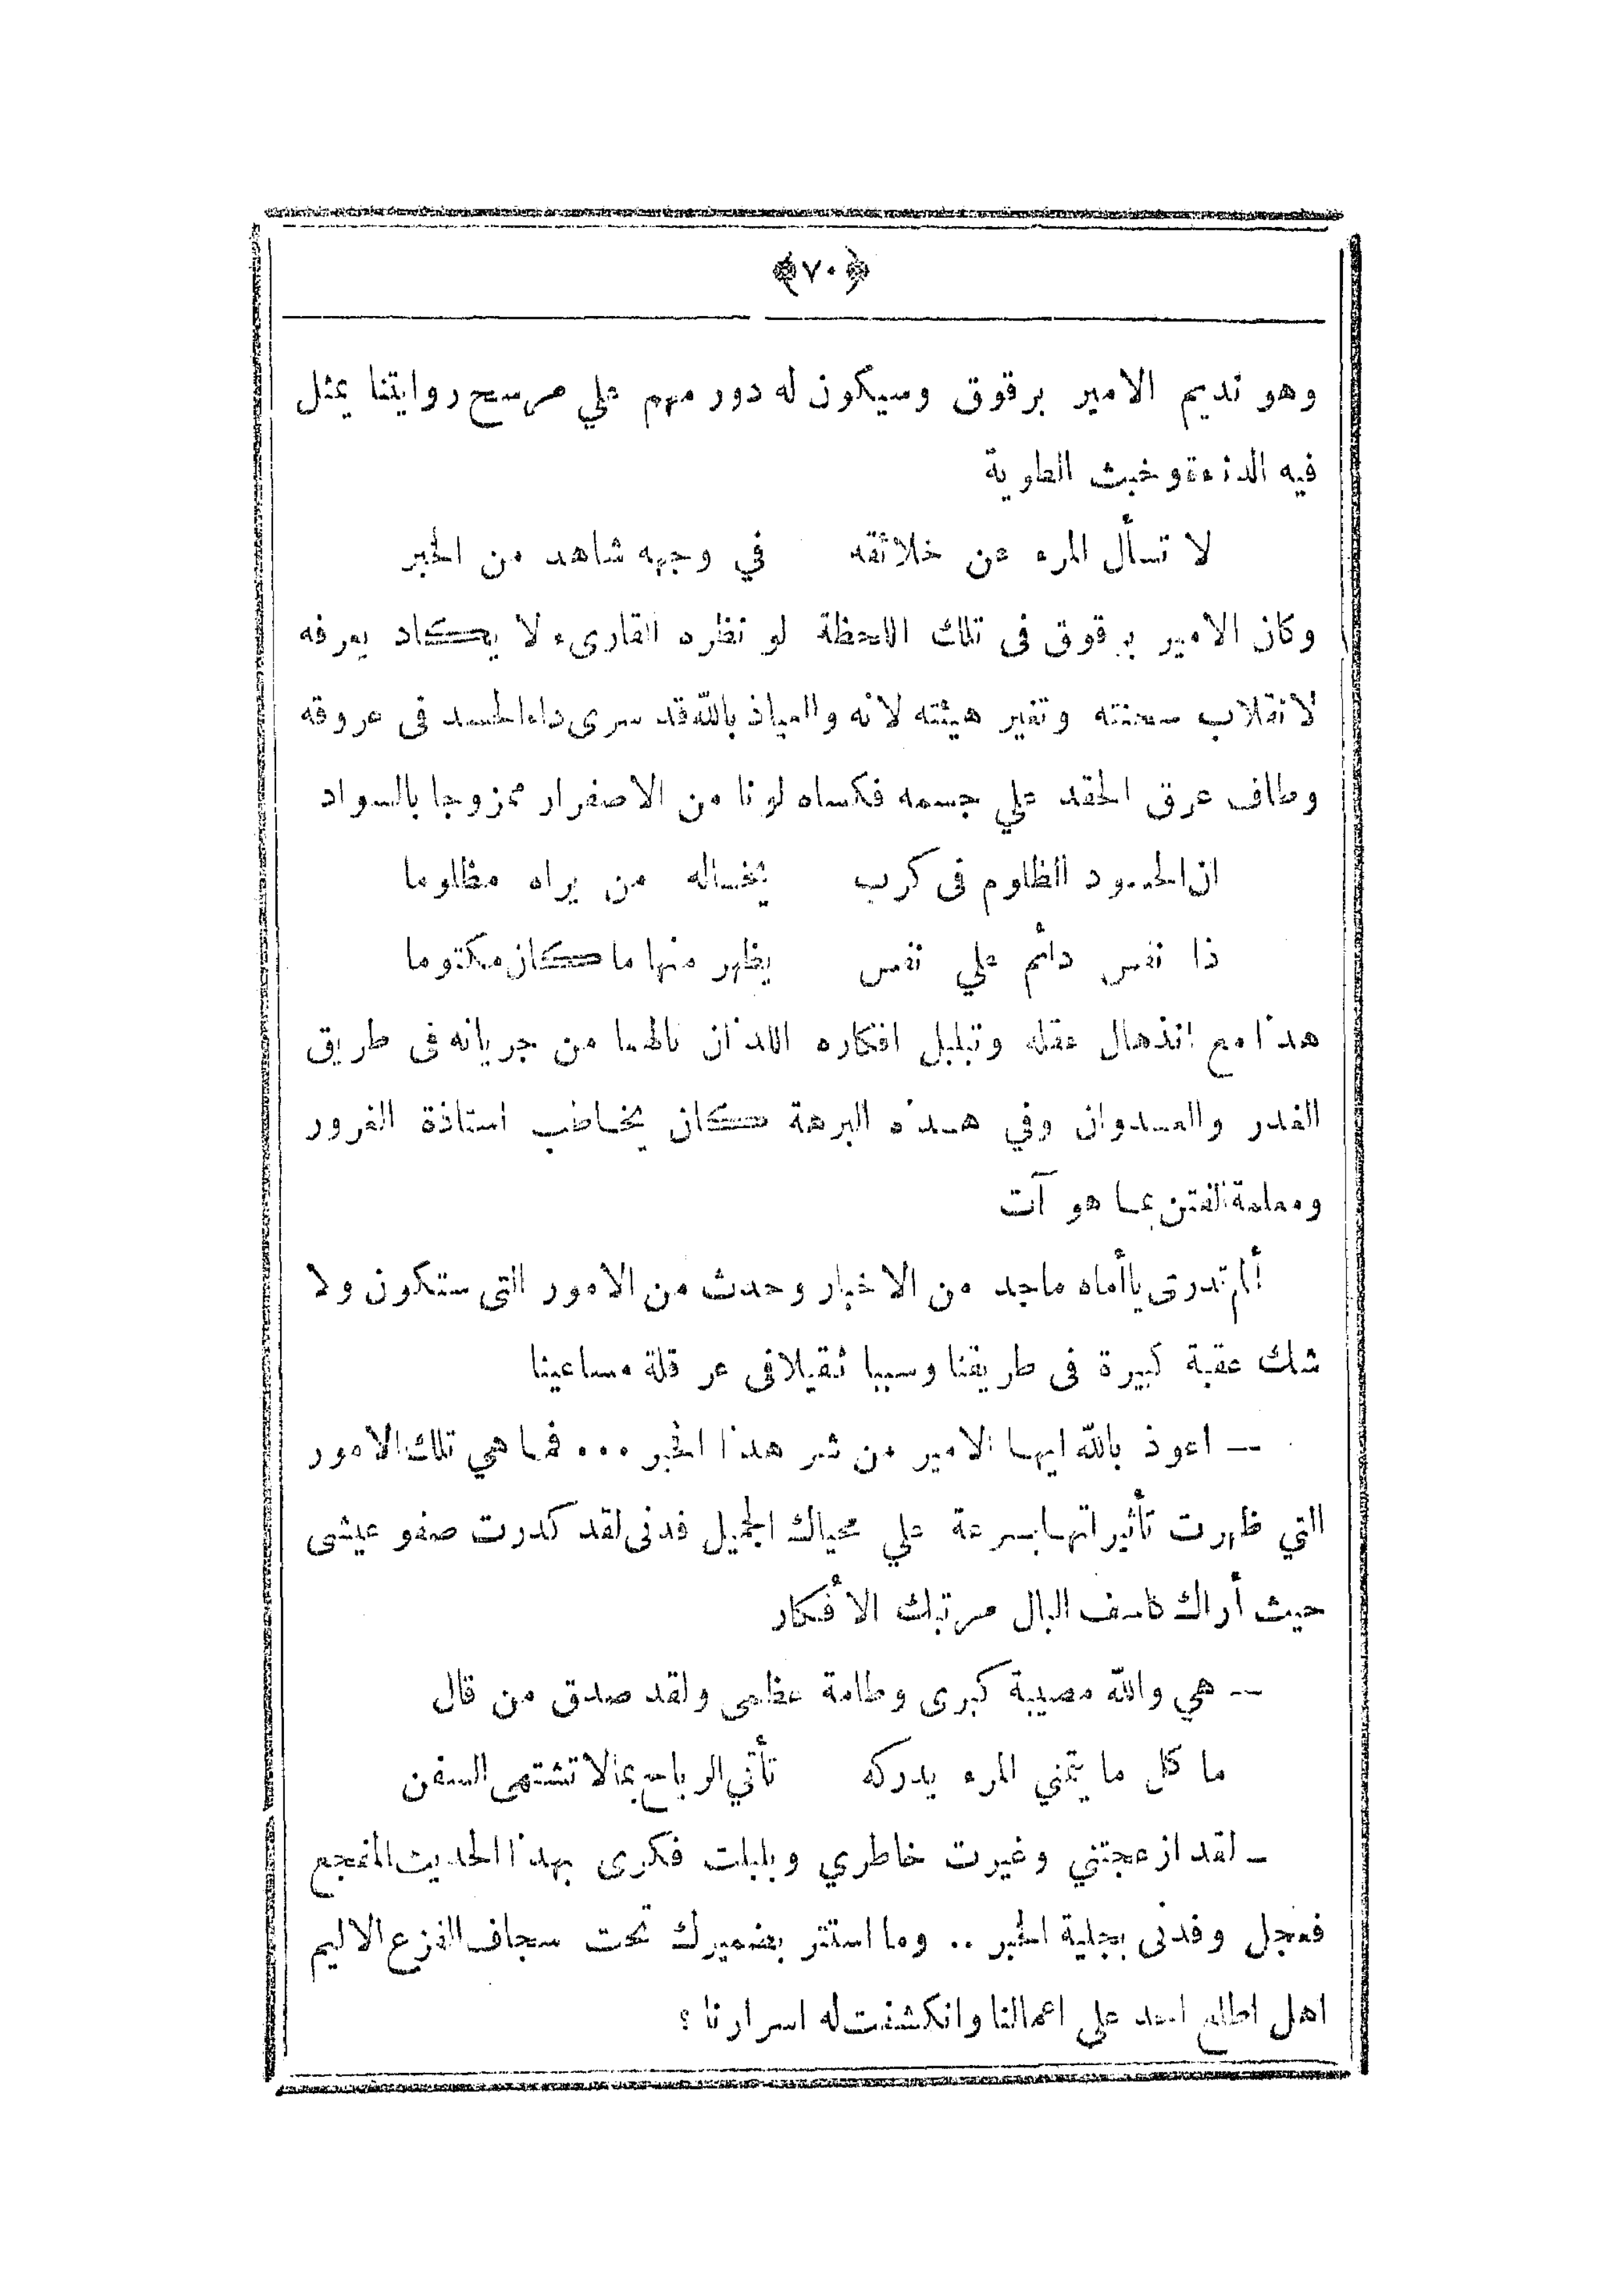 ﴿٧٠﴾
وهو نديم الامير برقوق وسيكون له دور مهم علي مرسح روايتنا يمثل
فيه الدناءة وخبث الطوية
لا تسأل المرء عن خلائقه في وجهه شاهد من الخبر
وكان الامير برقوق فى تلك اللحظة لو نظره القارىء لا يكاد يعرفه
لانقلاب سحنته وتغير هيئته لانه والعياذ بالله قد سرى داء الحسد فى عروقه
وطاف عرق الحقد علي جسمه فكساه لونا من الاصفرار ممزوجا بالسواد
ان الحسود الظلوم فى كرب يخساله من يراه مظلوما
ذا نفس دائم علي نفس يظهر منها ما كان مكتوما
هذا مع انذهال عقله وتبلبل افكاره اللذان نالهما من جريانه فى طريق
الغدر والعدوان وفي هذه البرهة كان يخاطب استاذة الغرور
ومعلمة الفتن بما هو آت
ألم تدرى ياأماه ماجد من الاخبار وحدث من الامور التى ستكون ولا
شك عقبة كبيرة فى طريقنا وسببا ثقيلا فى عرقلة مساعينا
— اعوذ بالله ايها الامير من شر هذا الخبر ... فما هي تلك الامور
التي ظهرت تأثيراتها بسرعة علي محياك الجميل فدنى لقد كدرت صفو عيشى
حيث أراك كاسف البال مرتبك الأفكار
— هي والله مصيبة كبرى وطامة عظمى ولقد صدق من قال
ما كل ما يتمني المرء يدركه تأتي الرياح بما لا تشتهى السفن
— لقد ازعجتني وغيرت خاطري وبلبلت فكرى بهذا الحديث المفجع
فعجل وفدنى بجلية الخبر .. وما استتر بضميرك تحت سجاف الفزع الاليم
اهل اطلع احد علي اعمالنا وانكشفت له اسرارنا ؟